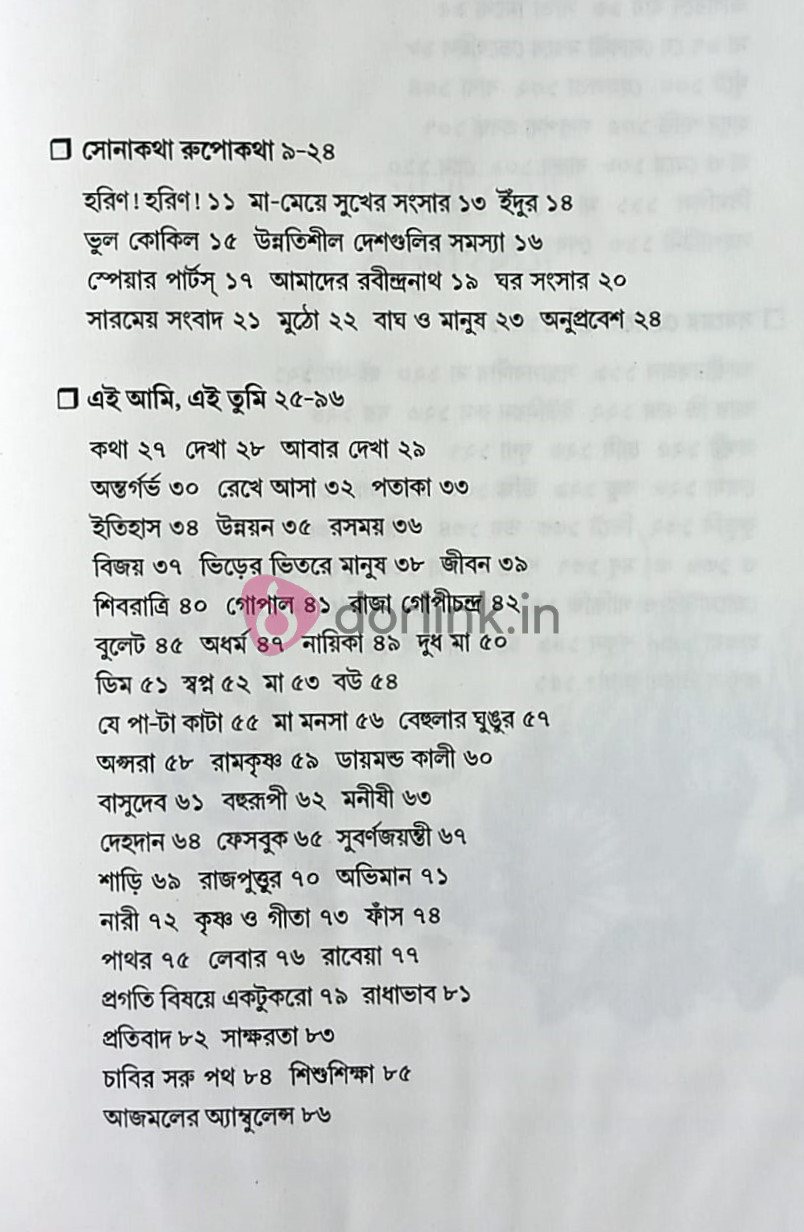 ❒ সোনাকথা রুপোকথা ৯-২৪
হরিণ! হরিণ! ১১ মা-মেয়ে সুখের সংসার ১৩ ইঁদুর ১৪
ভুল কোকিল ১৫ উন্নতিশীল দেশগুলির সমস্যা ১৬
স্পেয়ার পার্টস্ ১৭ আমাদের রবীন্দ্রনাথ ১৯ ঘর সংসার ২০
সারমেয় সংবাদ ২১ মুঠো ২২ বাঘ ও মানুষ ২৩ অনুপ্রবেশ ২৪
❒ এই আমি, এই তুমি ২৫-৯৬
কথা ২৭ দেখা ২৮ আবার দেখা ২৯
অন্তর্গর্ভ ৩০ রেখে আসা ৩২ পতাকা ৩৩
ইতিহাস ৩৪ উন্নয়ন ৩৫ রসময় ৩৬
বিজয় ৩৭ ভিড়ের ভিতরে মানুষ ৩৮ জীবন ৩৯
শিবরাত্রি ৪০ গোপাল ৪১ রাজা গোপীচন্দ্র ৪২
dorlink.in
বুলেট ৪৫ অধর্ম ৪৭ নায়িকা ৪৯ দুধ মা ৫০
ডিম ৫১ স্বপ্ন ৫২ মা ৫৩ বউ ৫৪
যে পা-টা কাটা ৫৫ মা মনসা ৫৬ বেহুলার ঘুঙুর ৫৭
অপ্সরা ৫৮ রামকৃষ্ণ ৫৯ ডায়মন্ড কালী ৬০
বাসুদেব ৬১ বহুরূপী ৬২ মনীষী ৬৩
দেহদান ৬৪ ফেসবুক ৬৫ সুবর্ণজয়ন্তী ৬৭
শাড়ি ৬৯ রাজপুত্তুর ৭০ অভিমান ৭১
নারী ৭২ কৃষ্ণ ও গীতা ৭৩ ফাঁস ৭৪
পাথর ৭৫ লেবার ৭৬ রাবেয়া ৭৭
প্রগতি বিষয়ে একটুকরো ৭৯ রাধাভাব ৮১
প্রতিবাদ ৮২ সাক্ষরতা ৮৩
চাবির সরু পথ ৮৪ শিশুশিক্ষা ৮৫
আজমলের অ্যাম্বুলেন্স ৮৬